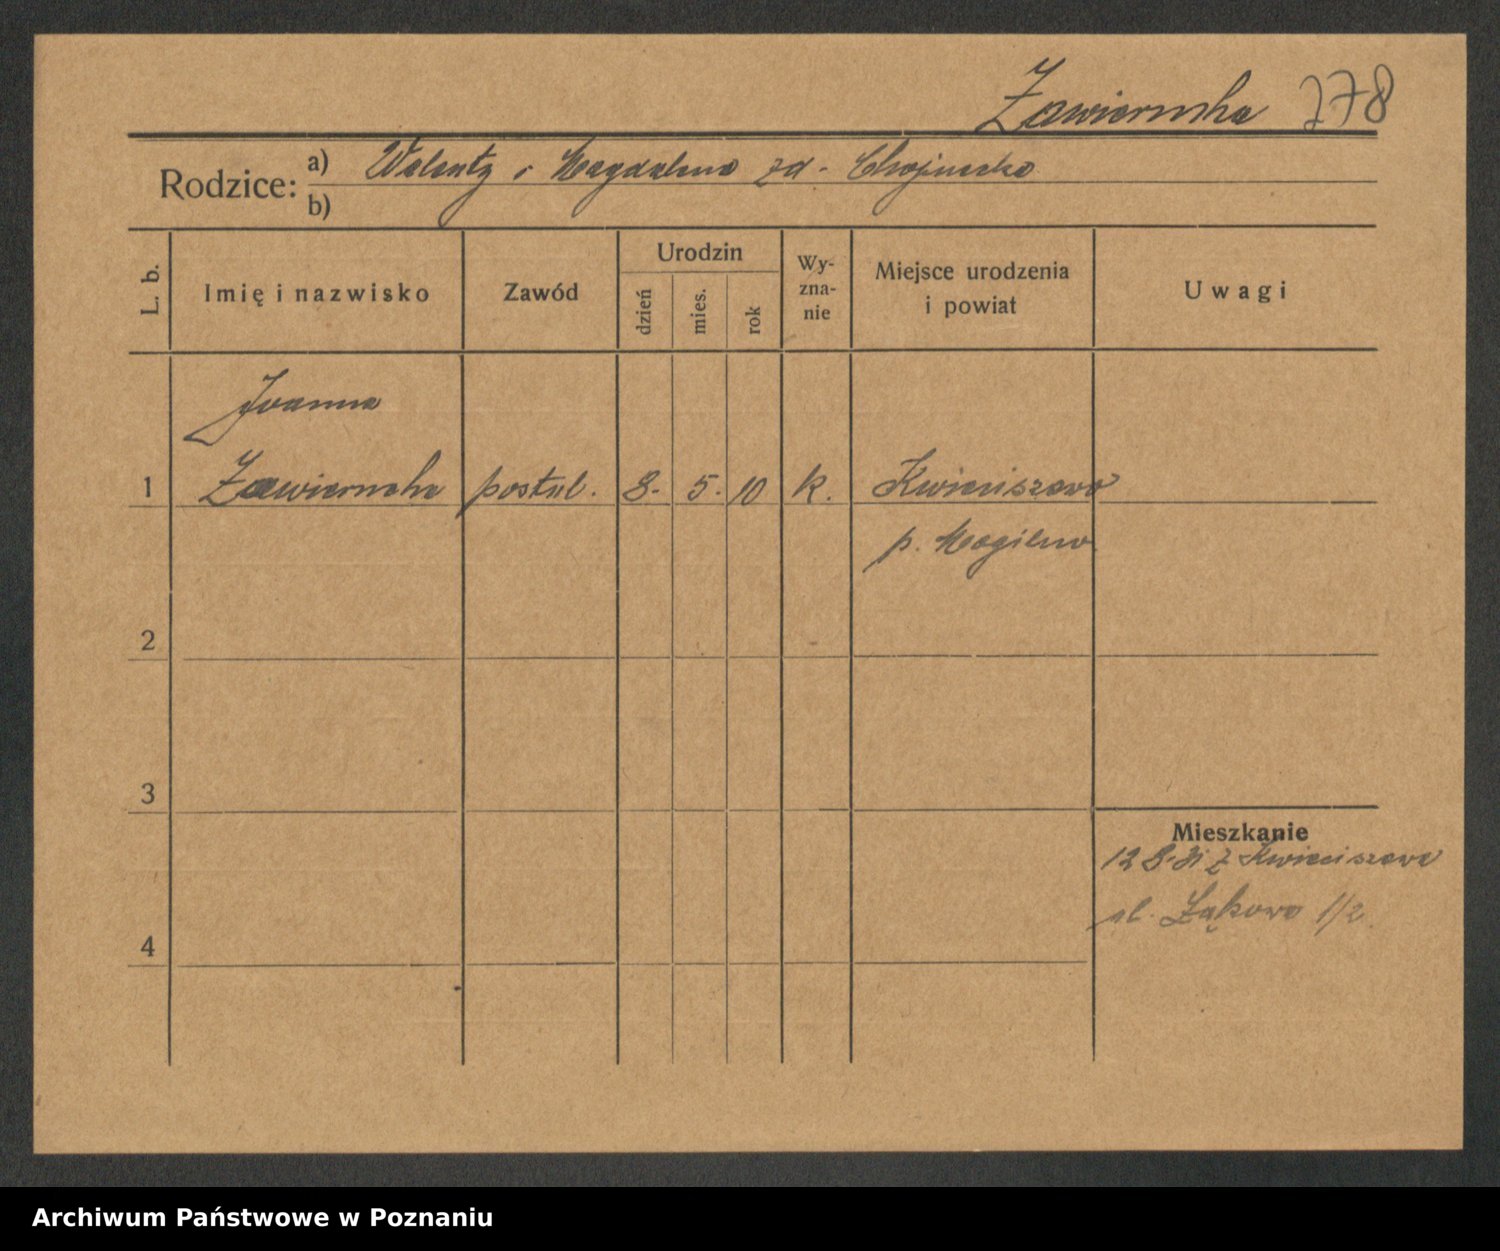 Zawiernska 278
Rodzice: a) Walenty i Magdalena zd. Chojnacka
b)
L. b.
Imię i nazwisko
Zawód
Urodzin
dzień
mies.
rok
Wy-
zna-
nie
Miejsce urodzenia
i powiat
Uwagi
Joanna
1 Zawiernska postul. 8. 5. 10 k. Kwieciszewo
p. Mogilno
2
3
Mieszkanie
12 8. 31 z Kwieciszewo
ul. Łąkowa 1/2
4
Archiwum Państwowe w Poznaniu